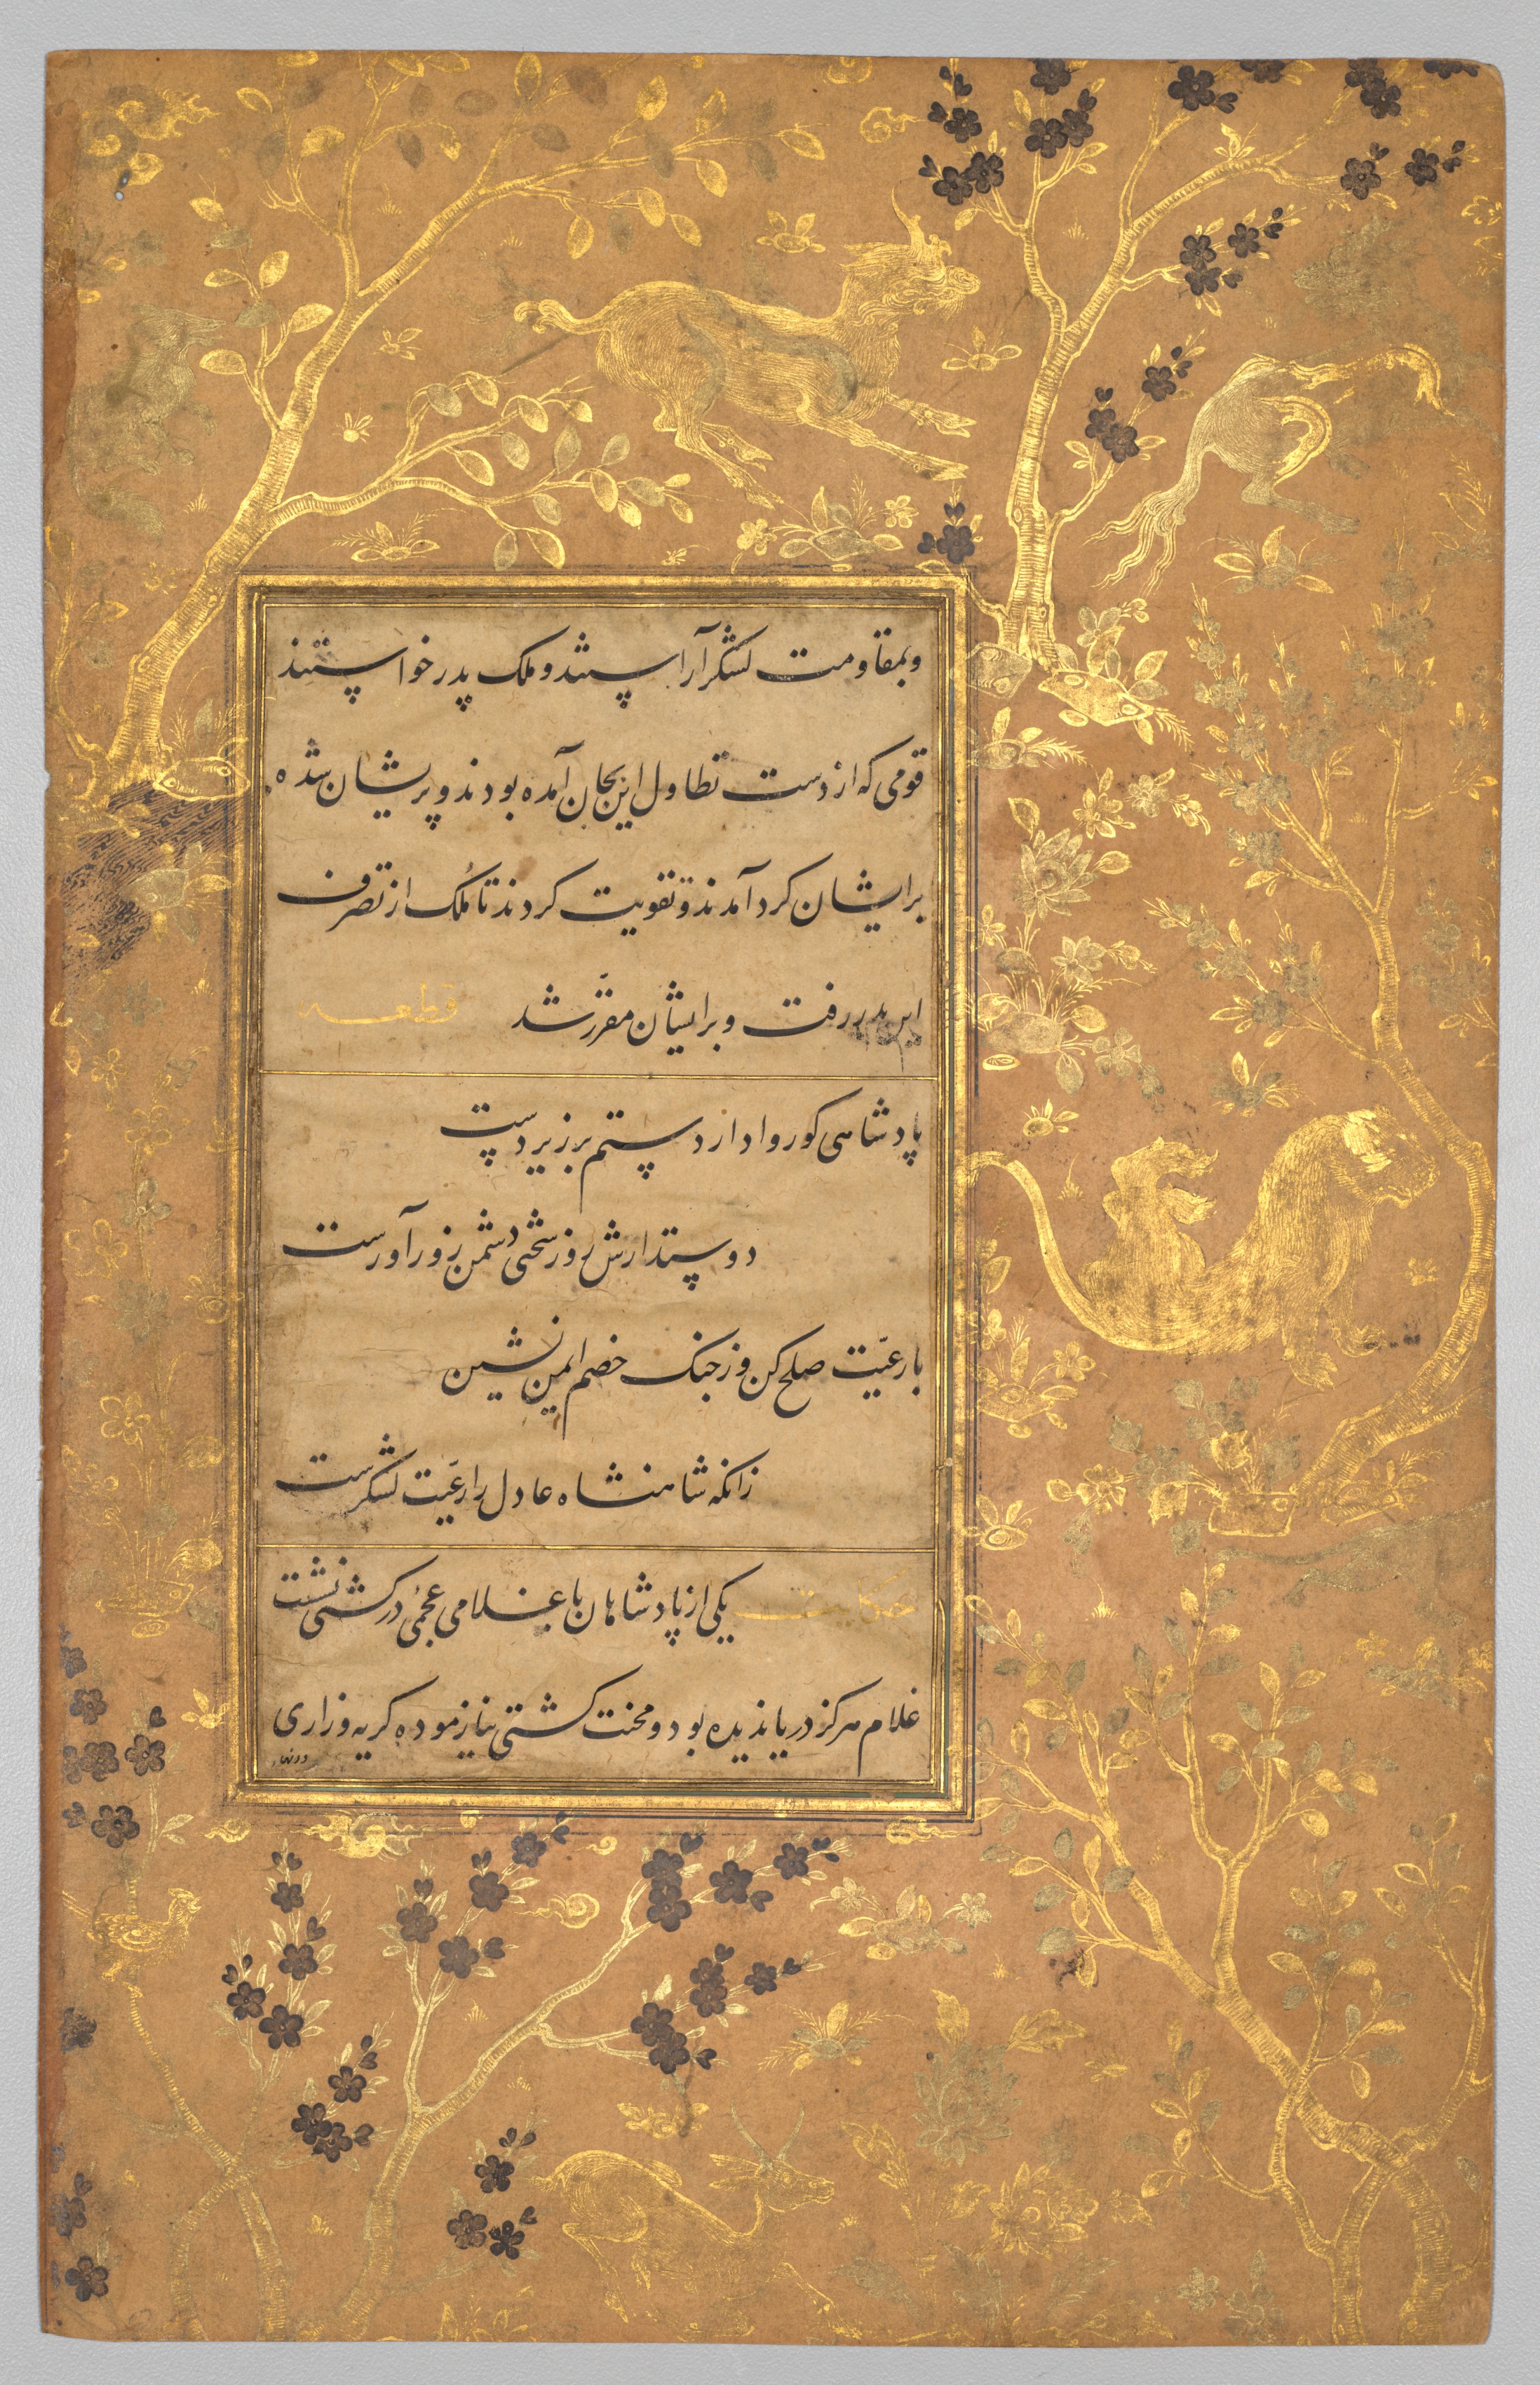 وبمقاومت لشکر آراستند و ملک پدر خواستند
قومی که از دست تطاول این بجان آمده بودند و پریشان شده
بر ایشان کرد آمدند و تقویت کردند تا مُلک از تصرف
این بدر رفت و بر ایشان مقرّر شد قطعه
پادشاهی کو روا دارد ستم بر زیردست
دوستدارش روز سختی دشمن زورآورست
با رعیّت صلح کن وز جنک خصم ایمن نشین
زانکه شاهنشاه عادل را رعیّت لشکرست
حکایت یکی از پادشاهان با غلامی عجمی در کشتی نشست
غلام هرکز دریا ندیده بود و محنت کشتی نیازموده کریه و زاری